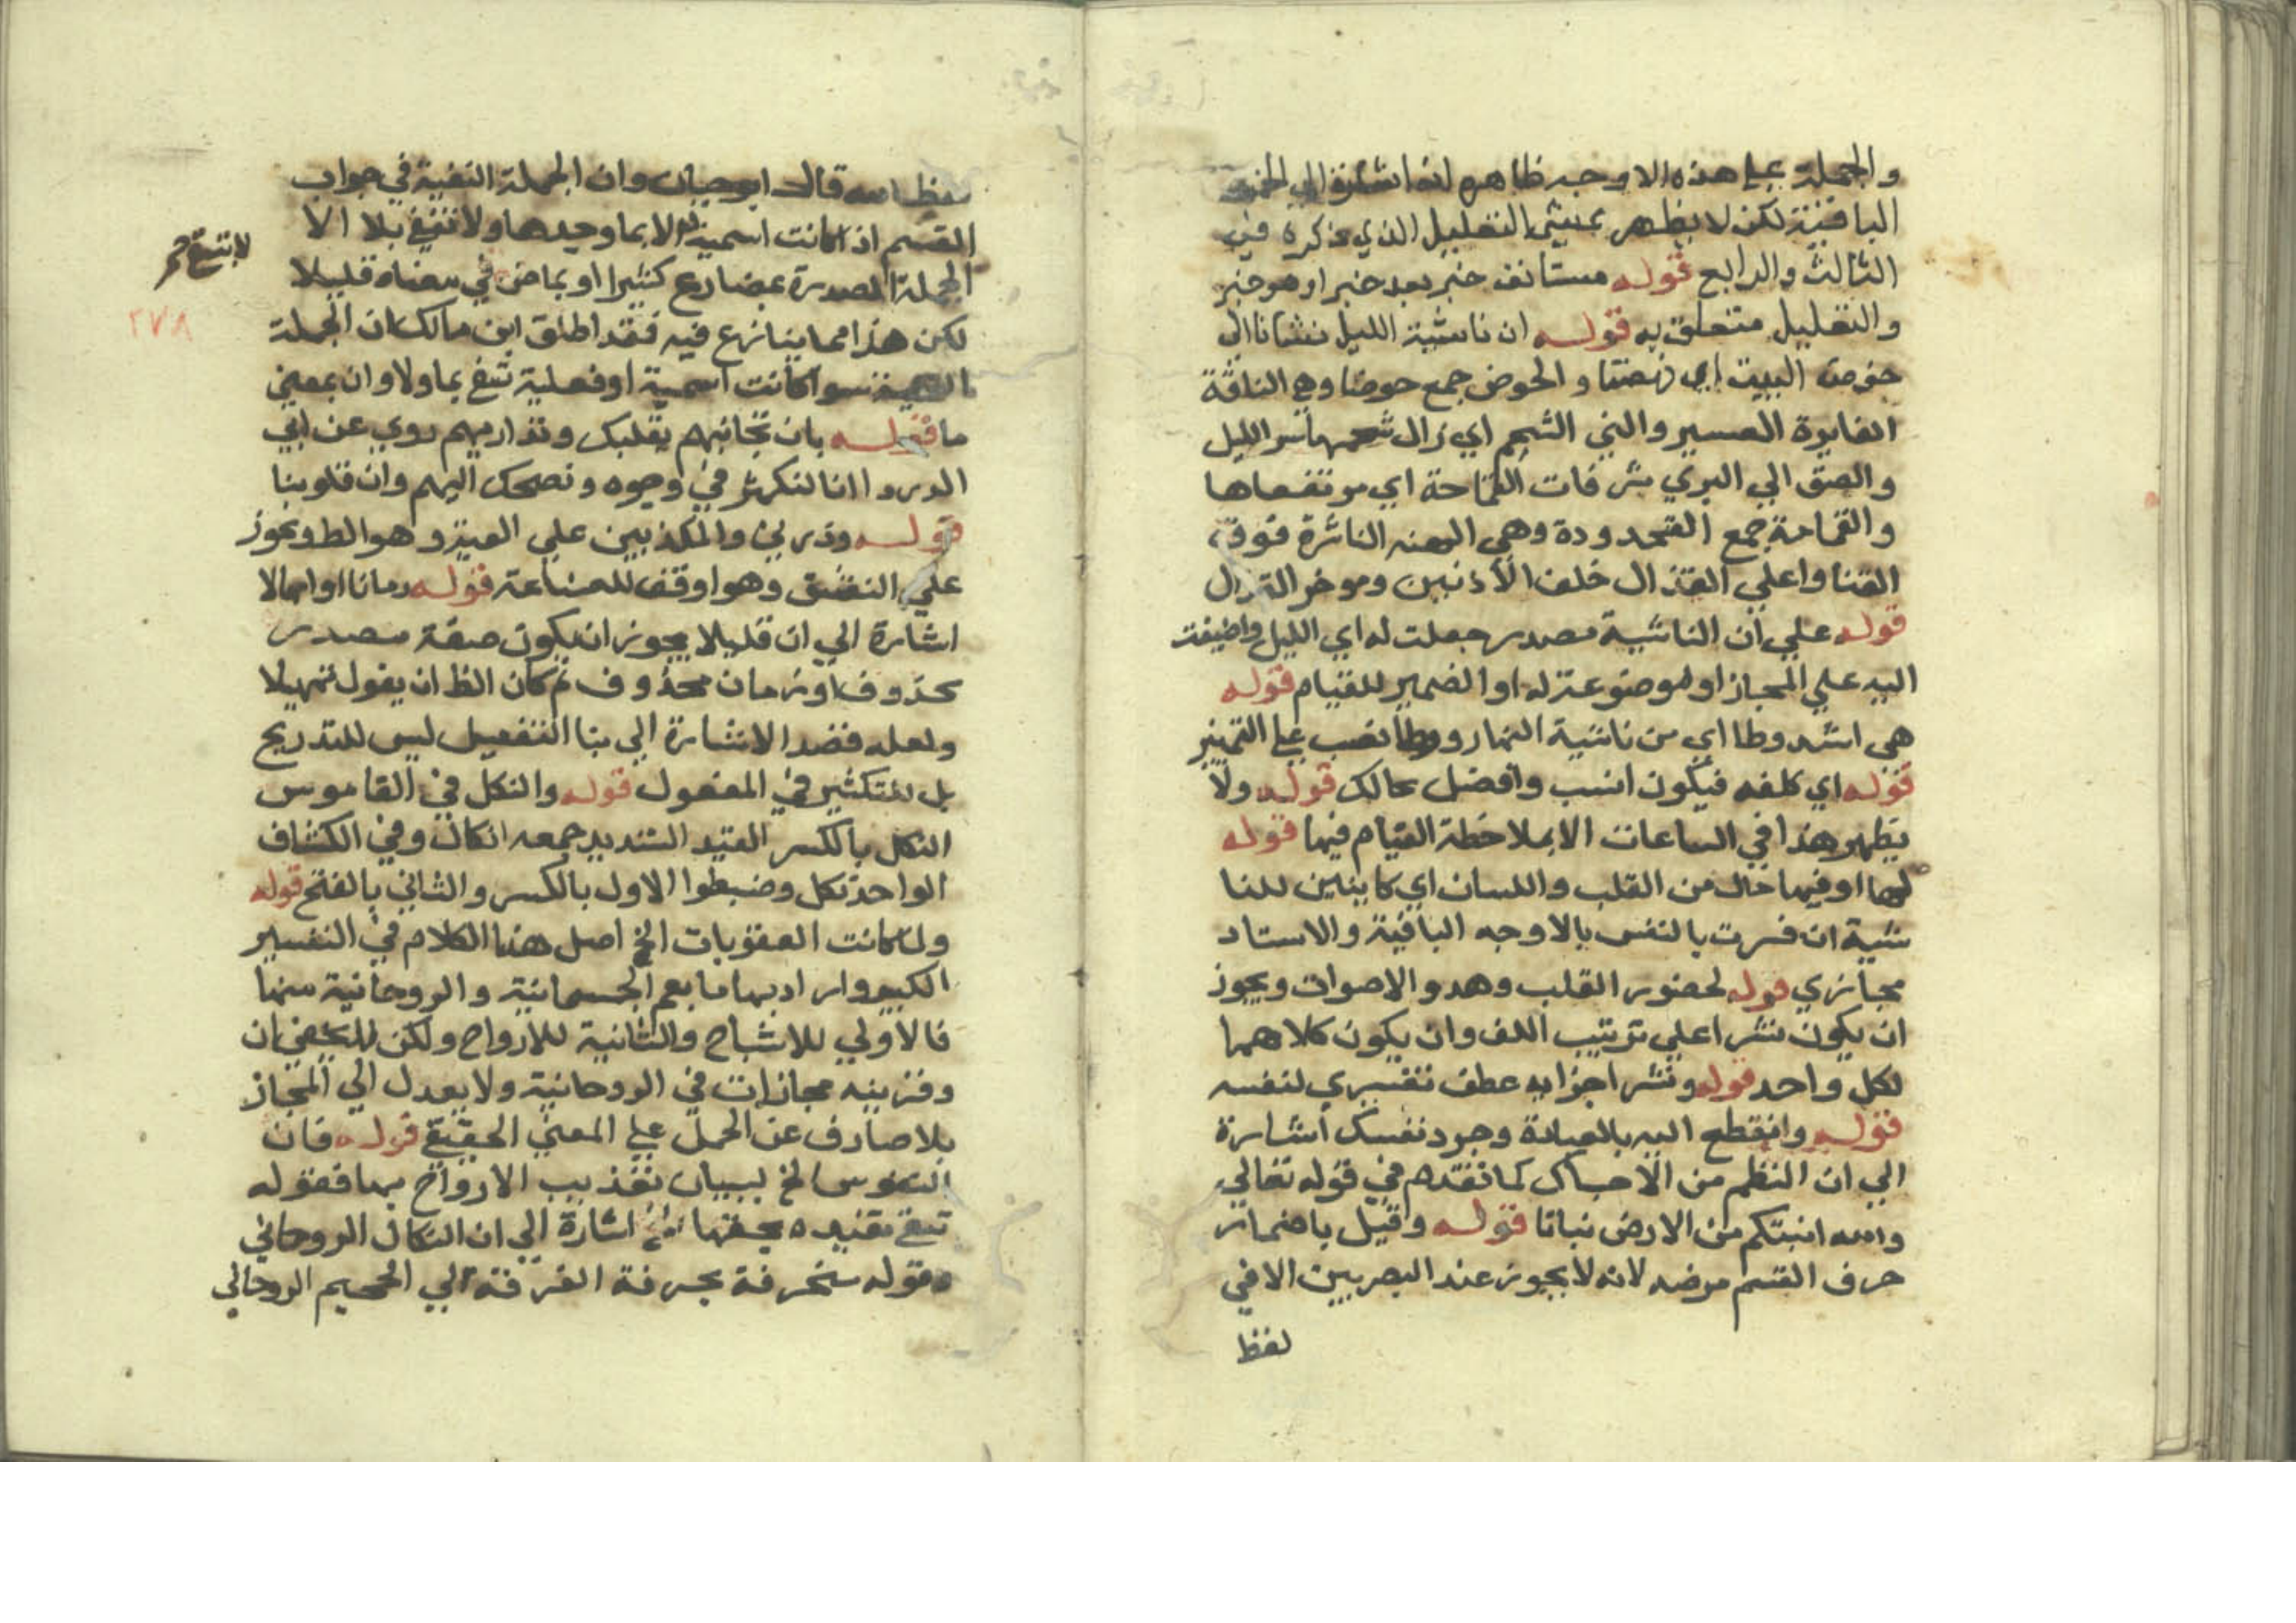 والجملة على هذه الاوجه ظاهره انه اشارة الى
الباقية لكن لا يظهر تمشى التعليل الذي ذكره في
الثالث والرابع قوله مستانف خبر بعد خبر او هو خبر
والتعليل متعلق به قوله ان ناشية الليل نشانا الى
خوص البيت اي نهضنا و الخوص جمع خوصا وهي الناقة
الغايرة العين والني الشحم اي زال شحمها سر الليل
والصق الي البري مشرفات القماحد اي مرتفعاها
والقمامة جمع القمحدودة وهي الهنه الناشزة فوق
القفا واعلي القذال خلف الأذنين وموخر القذال
قوله علي ان الناشية مصدر جعلت له اي الليل واضيفت
اليه علي المجاز او لموصوعة له او الضمير للقيام قوله
هي اشد وطا اي من ناشية النهار ووطا نصب على التمييز
قوله اي كلفه فيكون انسب وافضل بحالك قوله ولا
يظهر هذا في الساعات الا بملاحظة القيام فيها قوله
لها او فيها حال من القلب واللسان اي كاينين للنا
شية ان فسرت بالنفس بالاوجه الباقية والاسناد
مجازي قوله لحضور القلب وهدو الاصوات ويجوز
ان يكون نشرا علي ترتيب اللف وان يكون كلاهما
لكل واحد قوله ونشر اجزايه عطف تفسيري لنفسه
قوله وانقطع اليه بالعبادة وجرد نفسك اشارة
الي ان النظم من الاحباك كما تقدم في قوله تعالي
والله انبتكم من الارض نباتا قوله وقيل باضمار
حرف القسم مرضه لانه لا يجوز عند البصريين الا في
لفظ
قال ابو حيان وان الجملة النفية في جواب
القسم اذا كانت اسمية الا بما وحدها ولا تنفي بلا الا
الجملة المصدرة بمضارع كثيرا او بماض في معناه قليلا
لا تنتفي
٢٧٨
لكن هذا مما ينازع فيه فقد اطلق ابن مالك ان الجملة
سوا كانت اسمية او فعلية تنفي بما ولا وان بمعني
ما قوله بان تجانبهم بقلبك وتداريهم روي عن ابي
الدردا انا لنكشر في وجوه ونضحك اليهم وان قلوبنا
قوله وذرني والمكذبين علي المعية وهو الظ ويجوز
علي النسق وهو اوفق للصناعة قوله زمانا او امهالا
اشارة الي ان قليلا يجوز ان يكون صفة مصدر
محذوف او زمان محذوف ثم كان الظ ان يقول تمهيلا
ولعله قصد الاشارة الي بنا التفعيل ليس للتدريج
بل للتكثير في المفعول قوله والنكل في القاموس
النكل بالكسر القيد الشديد جمعه انكال وفي الكشاف
الواحد نكل وضبطوا الاول بالكسر والثاني بالفتح قوله
ولما كانت العقوبات الخ اصل هذا الكلام في التفسير
الكبير واراد بها ما يعم الجسمانية والروحانية منها
فالاولي للاشباح والثانية للارواح ولكن لا يخفي ان
وقرينه مجازات في الروحانية ولا يعدل الي المجاز
بلا صارف عن الحمل على المعني الحقيقي قوله فان
النفوس الخ لبيان تعذيب الارواح بها فقوله
تبقي مقيده بحبها الخ اشارة الي ان النكال الروحاني
وقوله متحرقة بحرقة الفرقة الي الجحيم الروحاني